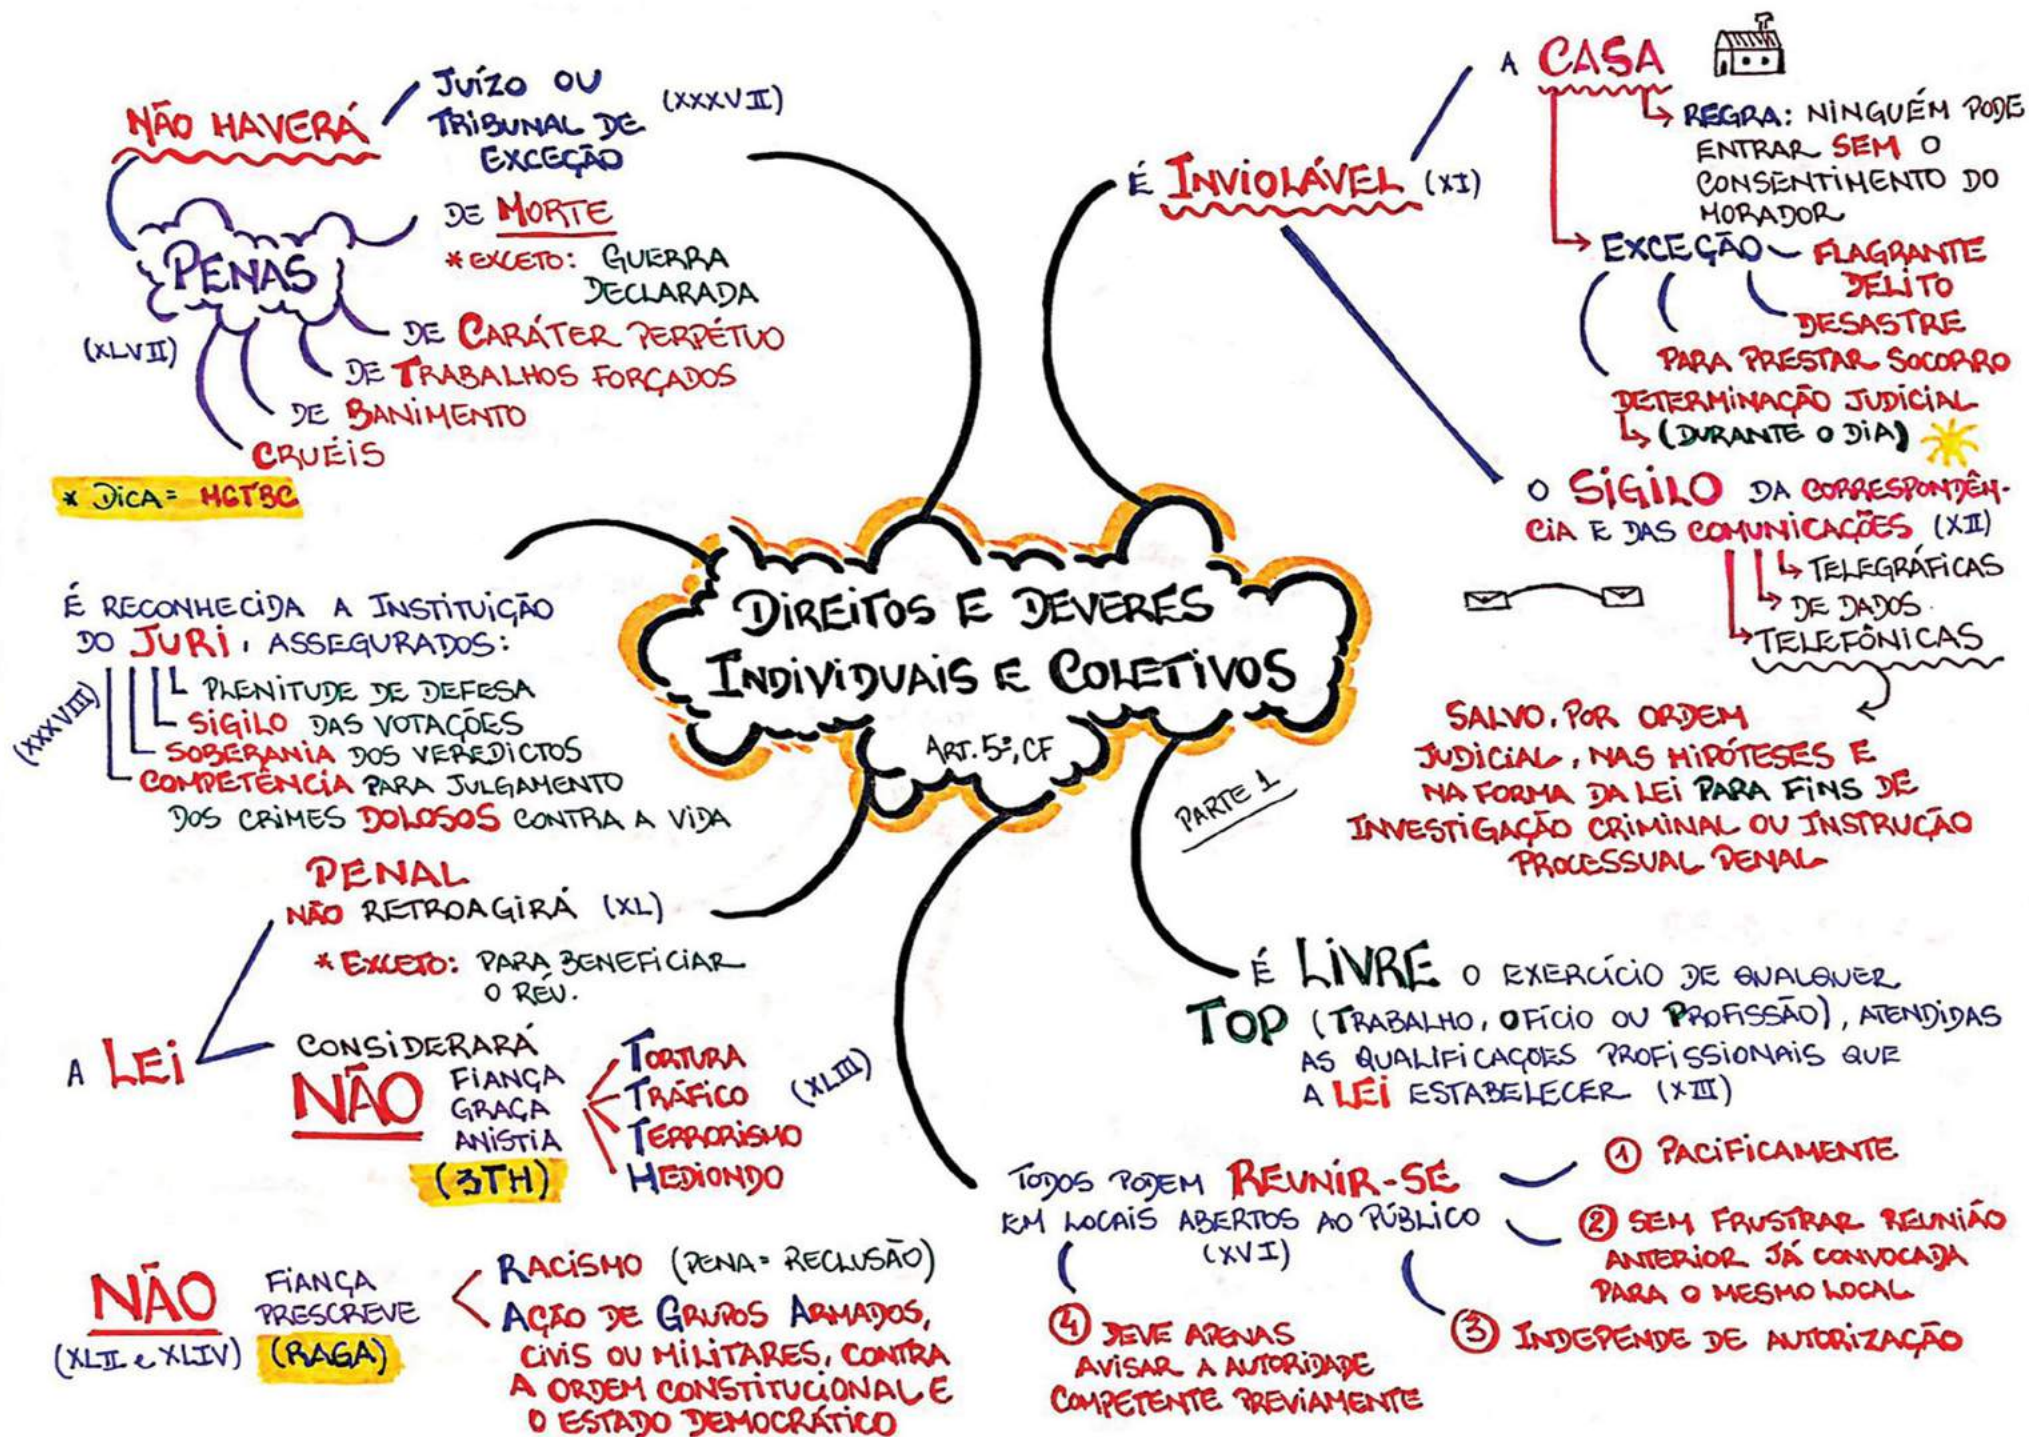 DIREITOS E DEVERES
INDIVIDUAIS E COLETIVOS
ART. 5º, CF
PARTE 1
NÃO HAVERÁ
JUÍZO OU
TRIBUNAL DE
EXCEÇÃO
(XXXVII)
PENAS
(XLVII)
DE MORTE
* EXCETO: GUERRA
DECLARADA
DE CARÁTER PERPÉTUO
DE TRABALHOS FORÇADOS
DE BANIMENTO
CRUÉIS
* DICA = MCTBC
É RECONHECIDA A INSTITUIÇÃO
DO JURI, ASSEGURADOS:
(XXXVIII)
PLENITUDE DE DEFESA
SIGILO DAS VOTAÇÕES
SOBERANIA DOS VEREDICTOS
COMPETÊNCIA PARA JULGAMENTO
DOS CRIMES DOLOSOS CONTRA A VIDA
A LEI
PENAL
NÃO RETROAGIRÁ (XL)
* EXCETO: PARA BENEFICIAR
O RÉU.
CONSIDERARÁ
NÃO
FIANÇA
GRAÇA
ANISTIA
(3TH)
TORTURA
TRÁFICO
TERRORISMO
HEDIONDO
(XLIII)
NÃO
(XLII e XLIV)
FIANÇA
PRESCREVE
(RAGA)
RACISMO (PENA = RECLUSÃO)
AÇÃO DE GRUPOS ARMADOS,
CIVIS OU MILITARES, CONTRA
A ORDEM CONSTITUCIONAL E
O ESTADO DEMOCRÁTICO
É INVIOLÁVEL (XI)
A CASA
REGRA: NINGUÉM PODE
ENTRAR SEM O
CONSENTIMENTO DO
MORADOR
EXCEÇÃO
FLAGRANTE
DELITO
DESASTRE
PARA PRESTAR SOCORRO
DETERMINAÇÃO JUDICIAL
(DURANTE O DIA)
O SIGILO DA CORRESPONDÊN-
CIA E DAS COMUNICAÇÕES (XII)
TELEGRÁFICAS
DE DADOS
TELEFÔNICAS
SALVO, POR ORDEM
JUDICIAL, NAS HIPÓTESES E
NA FORMA DA LEI PARA FINS DE
INVESTIGAÇÃO CRIMINAL OU INSTRUÇÃO
PROCESSUAL PENAL
É LIVRE O EXERCÍCIO DE QUALQUER
TOP (TRABALHO, OFÍCIO OU PROFISSÃO), ATENDIDAS
AS QUALIFICAÇÕES PROFISSIONAIS QUE
A LEI ESTABELECER (XIII)
TODOS PODEM REUNIR-SE
EM LOCAIS ABERTOS AO PÚBLICO
(XVI)
1 PACIFICAMENTE
2 SEM FRUSTRAR REUNIÃO
ANTERIOR JÁ CONVOCADA
PARA O MESMO LOCAL
3 INDEPENDE DE AUTORIZAÇÃO
4 DEVE APENAS
AVISAR A AUTORIDADE
COMPETENTE PREVIAMENTE